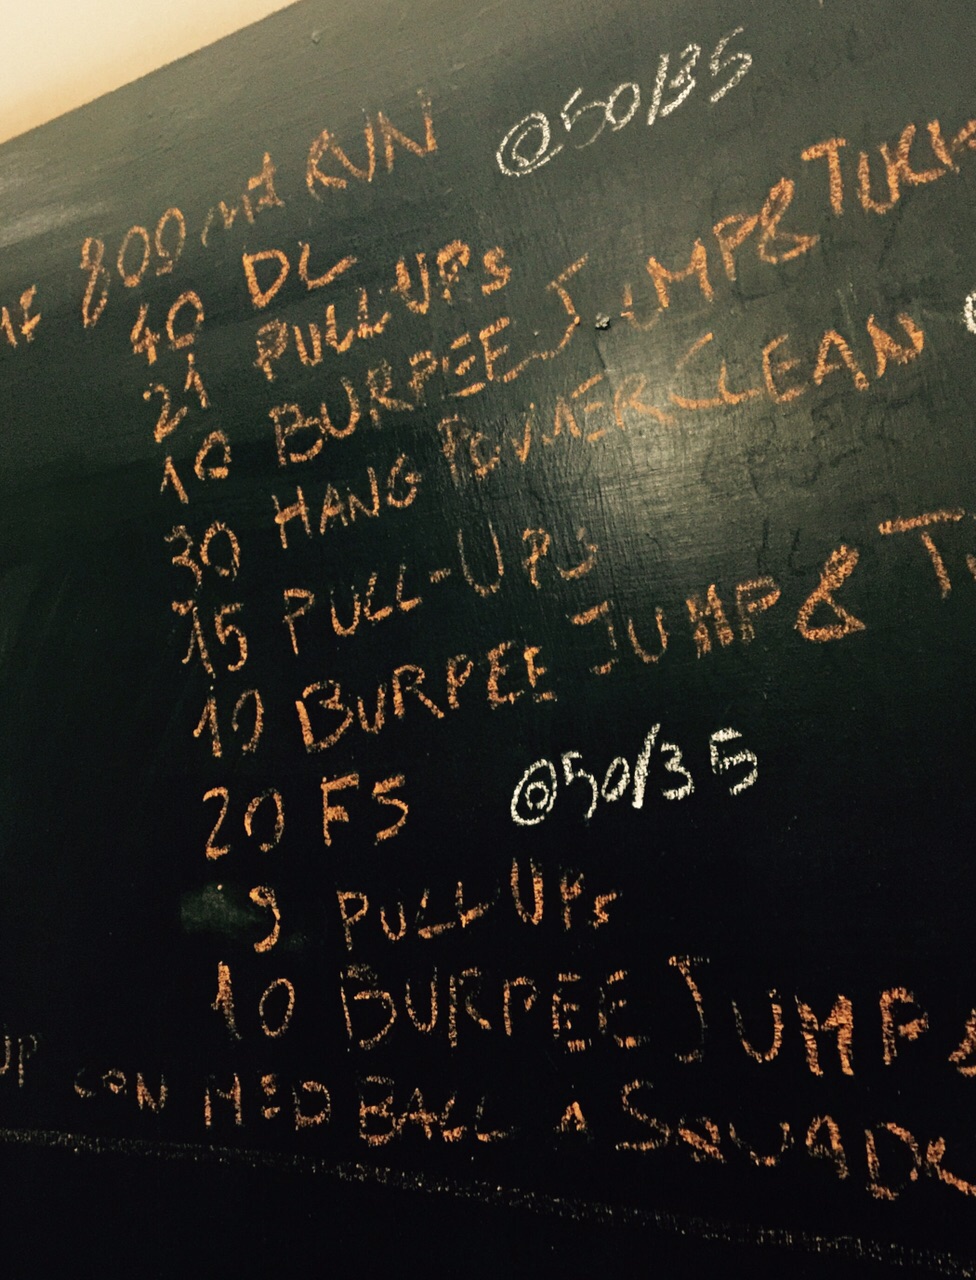 800 mt RUN @50/35
40 DL
21 PULL UPS
10 BURPEE JUMP & TUCK
30 HANG POWER CLEAN
15 PULL-UPS
10 BURPEE JUMP & T
20 FS @50/35
9 PULL UPS
10 BURPEE JUMP &
UP CON MED BALL A SQUADR